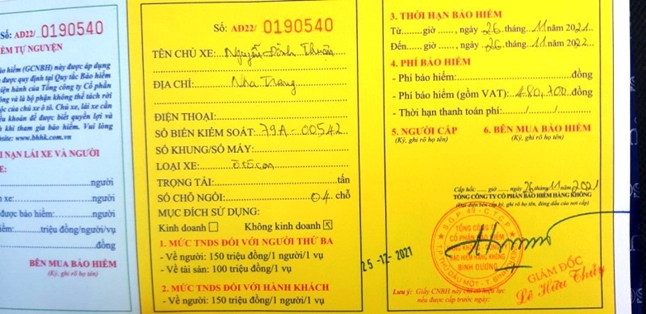 Số: AD22/ 0190540
ÈM TỰ NGUYỆN
ảo hiểm (GCNBH) này được áp dụng
được quy định tại Quy tắc Bảo hiểm
iện hành của Tổng công ty Cổ phần
ng và là bộ phận không thể tách rời
ộc của chủ xe ô tô. Chủ xe, lái xe cần
iều khoản để được biết quyền lợi và
h khi tham gia bảo hiểm. Vui lòng
bsite: www.bhhk.com.vn
I NẠN LÁI XE VÀ NGƯỜI
E:
người
xe: người
được bảo hiểm: người
iểm: triệu đồng/người/vụ
đồng
BÊN MUA BẢO HIỂM
(Ký, ghi rõ họ tên)
Số: AD22/ 0190540
TÊN CHỦ XE: Nguyễn Đình Thuần
ĐỊA CHỈ: Nha Trang
ĐIỆN THOẠI:
SỐ BIỂN KIỂM SOÁT: 79A-00542
SỐ KHUNG/SỐ MÁY:
LOẠI XE: Ôtô con
TRỌNG TẢI: tấn
SỐ CHỖ NGỒI: 04 chỗ
MỤC ĐÍCH SỬ DỤNG:
Kinh doanh Không kinh doanh
1. MỨC TNDS ĐỐI VỚI NGƯỜI THỨ BA
- Về người: 150 triệu đồng/1 người/1 vụ
- Về tài sản: 100 triệu đồng/1 vụ
2. MỨC TNDS ĐỐI VỚI HÀNH KHÁCH
- Về người: 150 triệu đồng/1 người/1 vụ
25-12-2021
3. THỜI HẠN BẢO HIỂM
Từ giờ , ngày 26 tháng 11 năm 2021
Đến giờ , ngày 26 tháng 11 năm 2022
4. PHÍ BẢO HIỂM
- Phí bảo hiểm: đồng
- Phí bảo hiểm (gồm VAT): 480,700 đồng
- Thời hạn thanh toán phí: / /
5. NGƯỜI CẤP 6. BÊN MUA BẢO HIỂM
(Ký, ghi rõ họ tên) (Ký, ghi rõ họ tên)
Cấp hồi: giờ ngày 26 tháng 11 năm 2021
TỔNG CÔNG TY CỔ PHẦN BẢO HIỂM HÀNG KHÔNG
TỔNG CÔNG TY
CỔ PHẦN BẢO HIỂM
BẢO HIỂM HÀNG KHÔNG
BÌNH DƯƠNG
GIÁM ĐỐC
Lê Hữu Thủy
Lưu ý: Giấy CNBH này chỉ có hiệu lực
nếu được cấp trước ngày: